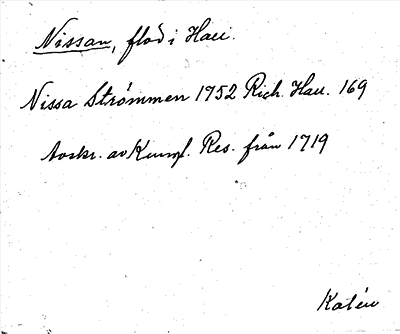 Nissan, flod i Hall.
Nissa Strömmen 1752 Rich. Hall. 169
Avskr. av Kungl. Res. från 1719
Kalén